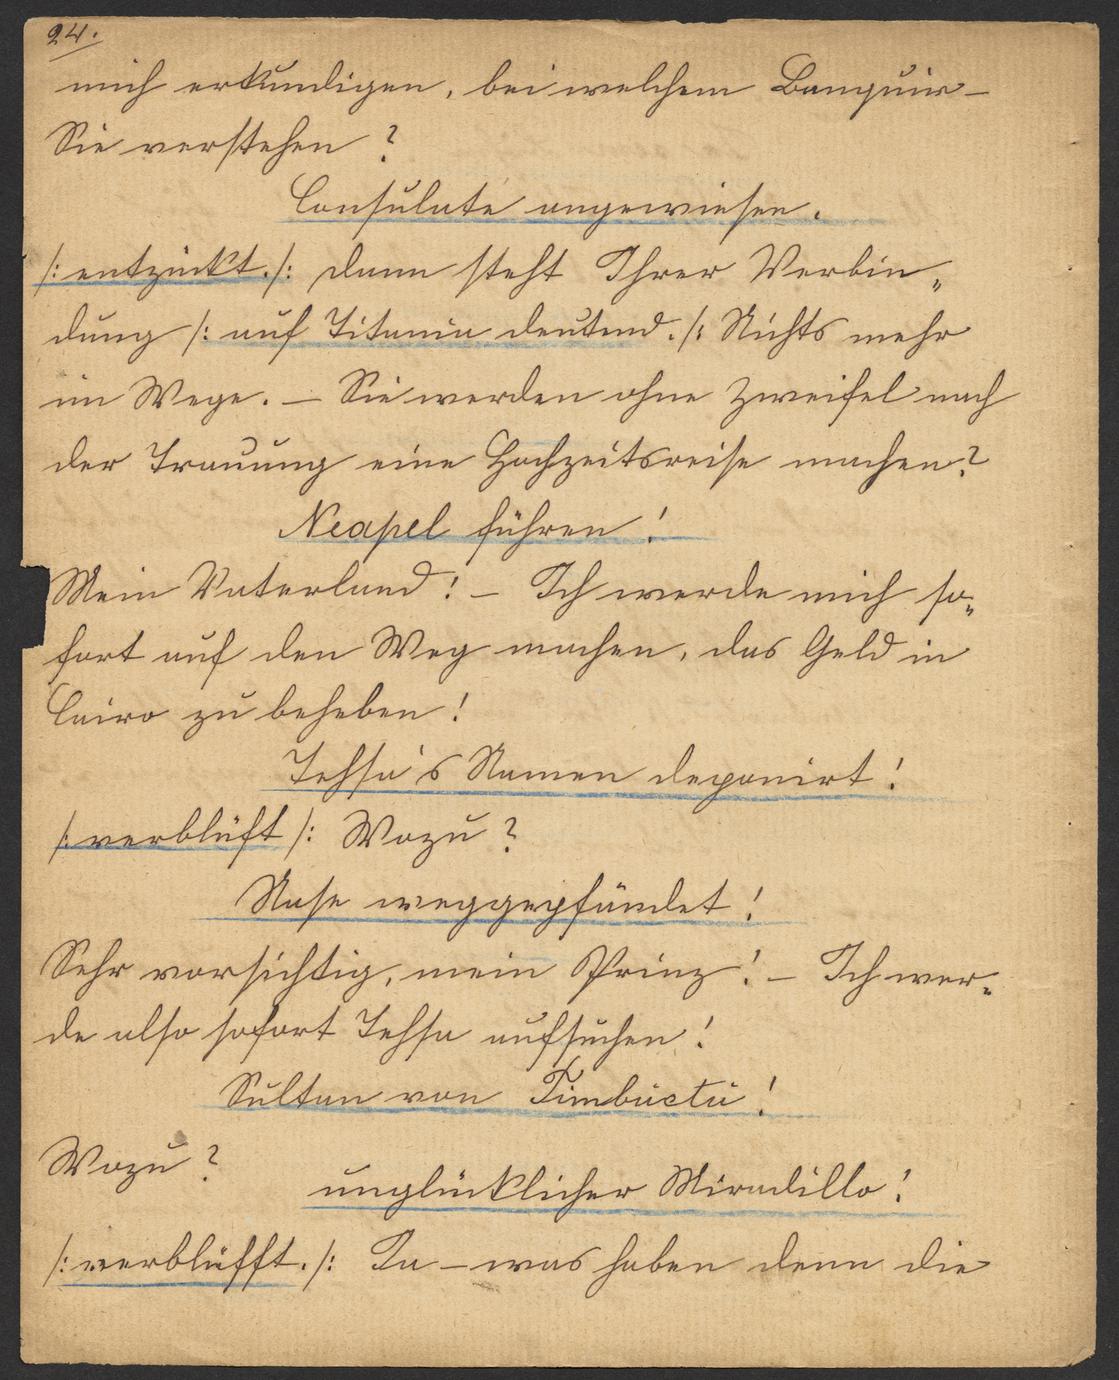 24.
mich erkundigen, bei welchem Banquir –
Sie verstehen ?
Consulate angewiesen.
/: entzückt. /: dann steht Ihrer Verbin„
dung /: auf Titania deutend. /: Nichts mehr
im Wege. – Sie werden ohne Zweifel nach
der Trauung eine Hochzeitsreise machen?
Neapel führen !
Mein Vaterland ! – Ich werde mich so„
fort auf den Weg machen, das Geld in
Cairo zu beheben !
Tehsa's Namen deponirt !
/: verblüft /: Wozu ?
Nase weggepfändet !
Sehr vorsichtig, mein Prinz ! – Ich wer„
de also sofort Tehsa aufsuchen !
Sultan von Timbuctu !
Wozu ?
unglücklicher Miradillo !
/: verblüfft. /: Ja – was haben denn die